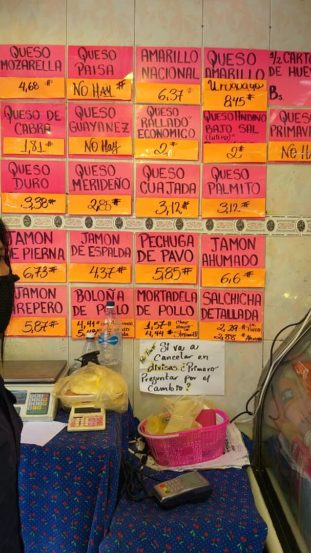 QUESO
MOZARELLA
4,68 #
QUESO
PAISA
NO HAY #
AMARILLO
NACIONAL
6,37 #
QUESO
AMARILLO
Uruguayo
8,45 #
1/2 CARTO
DE HUE
Bs
QUESO DE
CABRA
1,81 #
QUESO
GUAYANEZ
NO HAY
QUESO
RALLADO
ECONOMICO
2 #
BAJO SAL
2 #
QUESO
PRIMAVE
NO HA
QUESO
DURO
3,38 #
QUESO
MERIDEÑO
2,85 #
QUESO
CUAJADA
3,12 #
QUESO
PALMITO
3,12 #
JAMON
DE PIERNA
6,73 #
JAMON
DE ESPALDA
4,37 #
PECHUGA
DE PAVO
5,85 #
JAMON
AHUMADO
6,6 #
JAMON
AREPERO
5,87 #
BOLOÑA
DE POLLO
4,41 #
MORTADELA
DE POLLO
1,57 #
4,44 #
SALCHICHA
DETALLADA
2,29 #
2,88 #
Si va a
Cancelar en
divisas ¿Primero
Preguntar por el
Cambio?